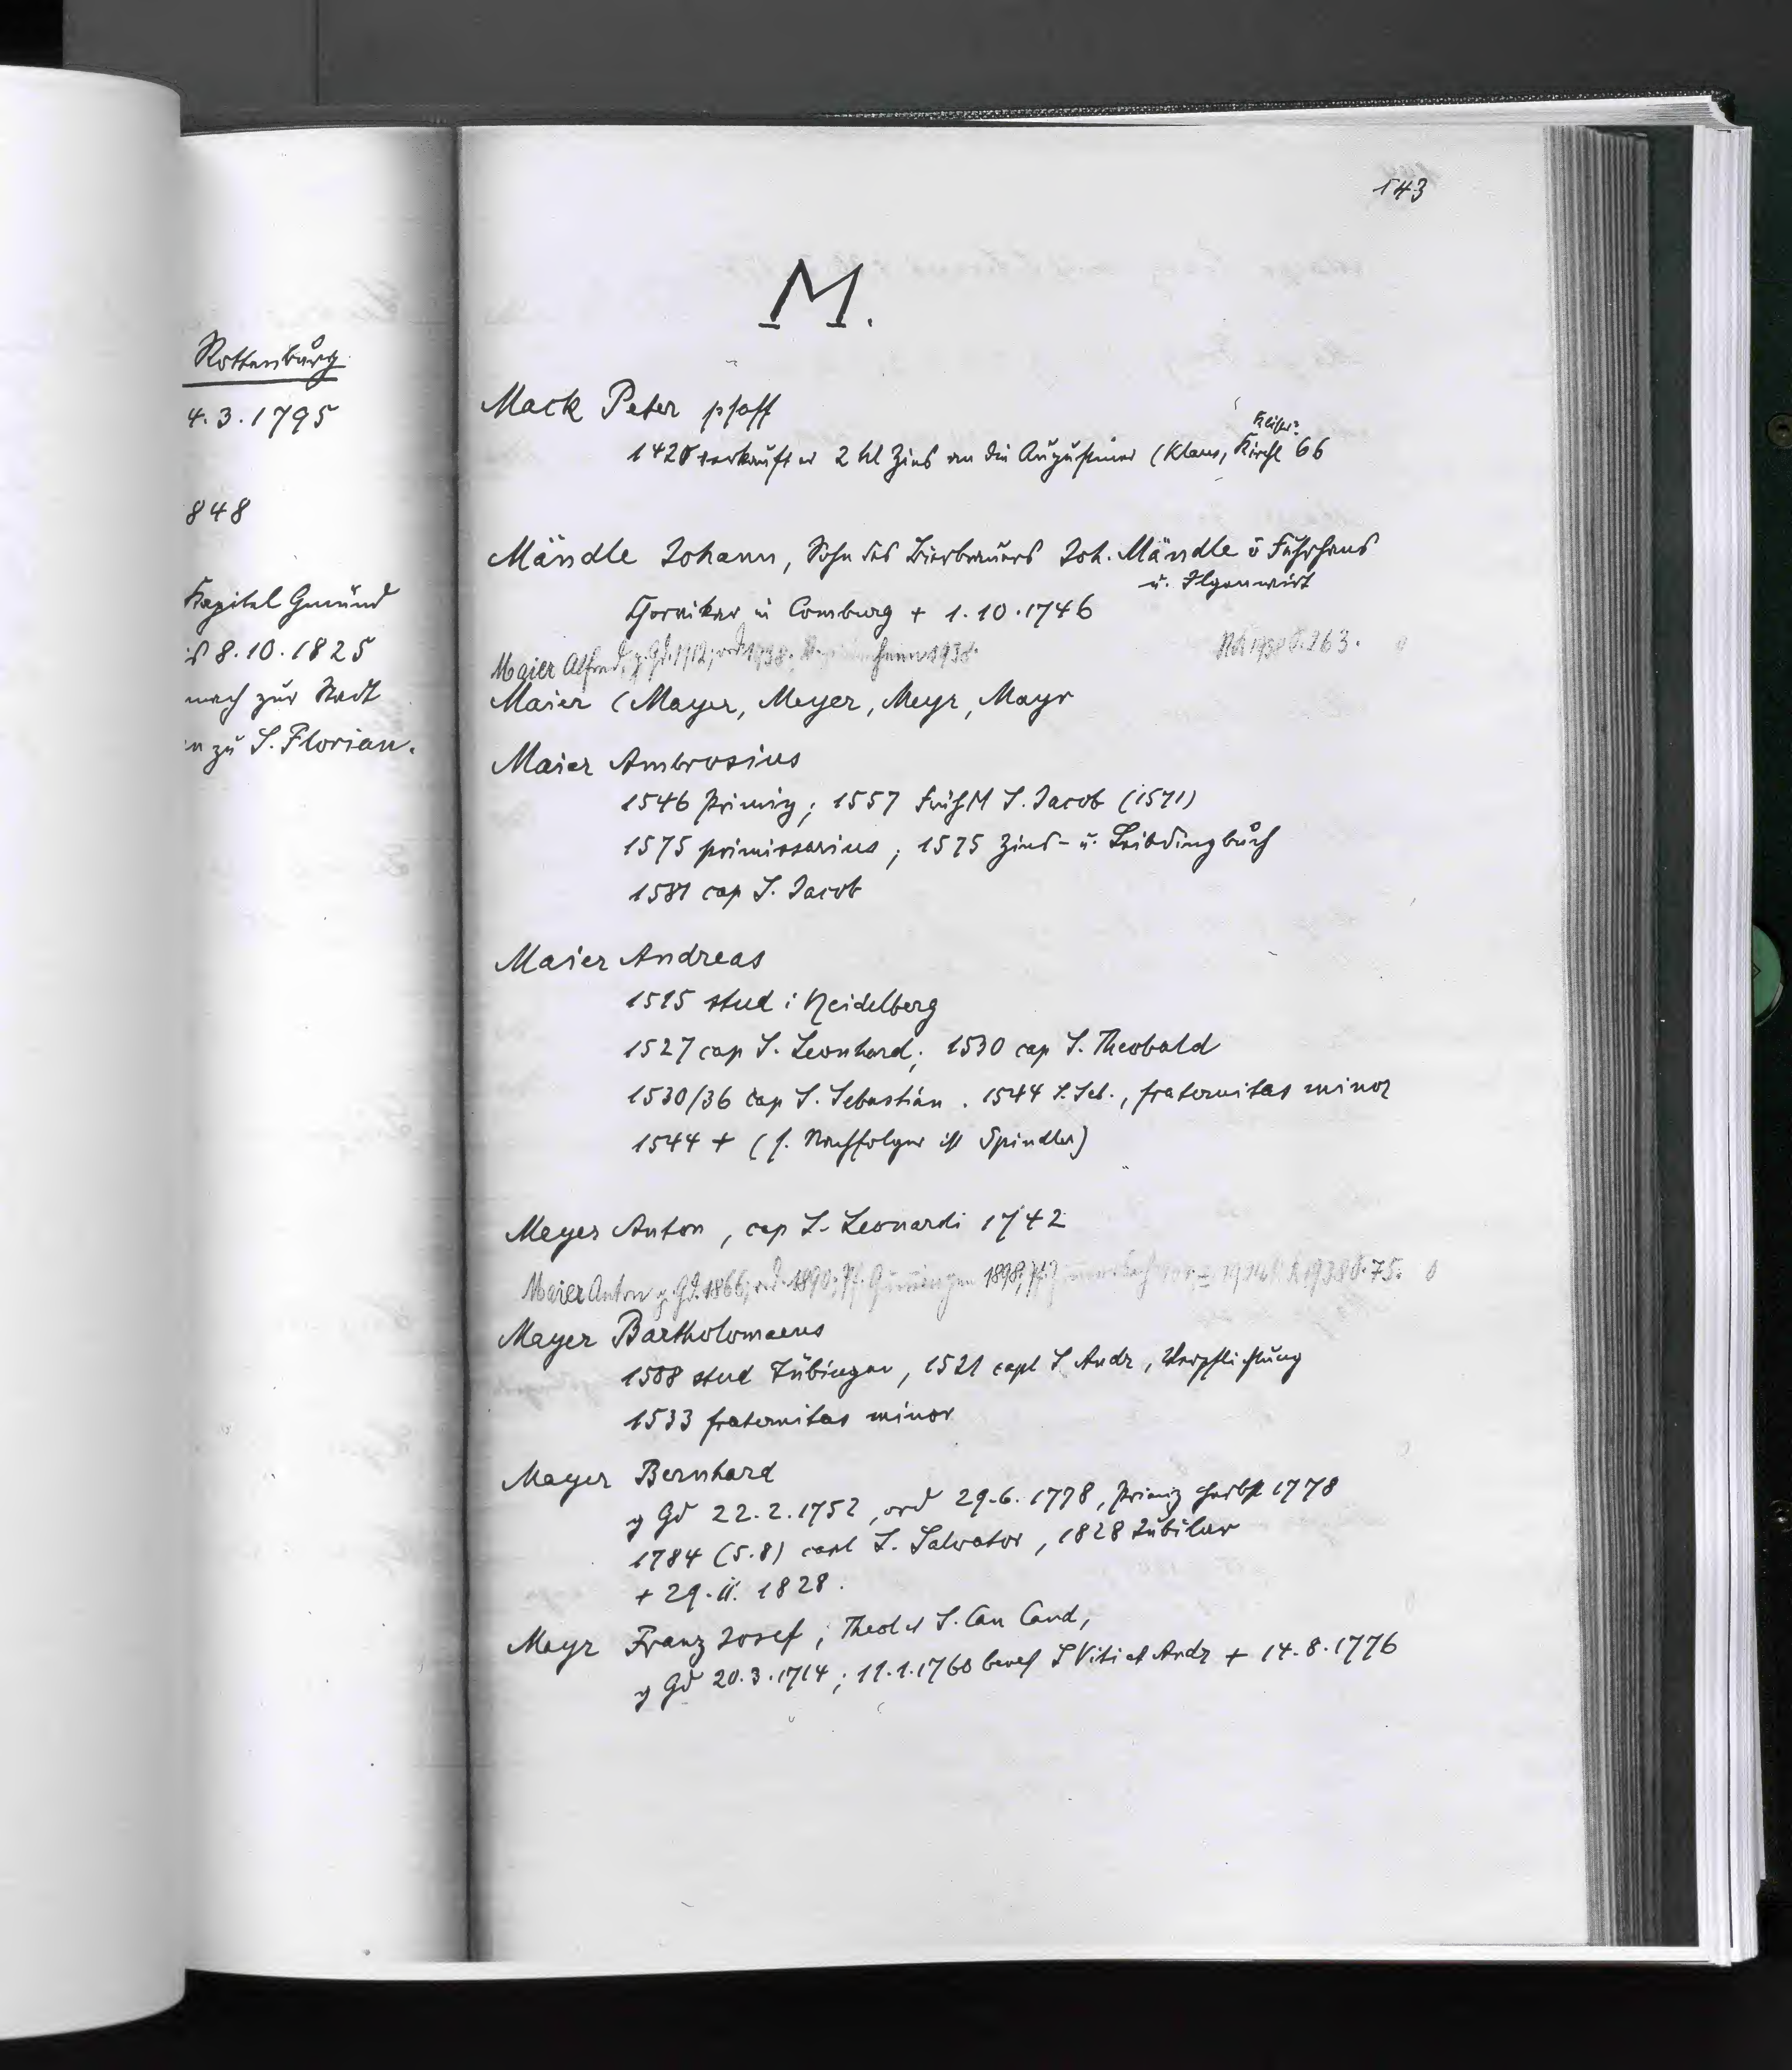 Rottenburg
4.3.1795
848
Kapitel Gmünd
8.10.1825
nach zur Stadt
zu S. Florian.
143
M.
Mack Peter pfaff
Klister?
1420 verkauft er 2 hl Zins an die Augustiner (Klaus, Kirchl 66
Mändle Johann, Sohn des Bierbrauers Joh. Mändle u Fuhrhaus
u. Ilgenwirt
Choriker in Comburg + 1.10.1746
Maier Alfred, g. Gd. 1912, ord 1938. 1938. 1938 S. 263.
Maier (Mayer, Meyer, Meyr, Mayr
Maier Ambrosius
1546 Primiz; 1557 FrühM S. Jacob (1571)
1575 primissarius; 1575 Zins- u. Leibdingbuch
1581 cap S. Jacob
Maier Andreas
1515 stud i Heidelberg
1527 cap S. Leonhard; 1530 cap S. Theobald
1530/36 cap S. Sebastian. 1544 S. Seb., fraternitas minor
1544 + (s. Nachfolger ist Spindler)
Meyer Anton, cap S. Leonardi 1742
Maier Anton g. Gd. 1866, ord. 1890, Pf. 1898, Pf. 1938 S. 75.
Mayer Bartholomaeus
1508 stud Tübingen, 1521 capl S Andr, Verpflichtung
1533 fraternitas minor
Mayer Bernhard
g Gd 22.2.1752, ord 29.6.1778, Primiz Herbst 1778
1784 (5.8) capl S. Salvator, 1828 Jubilar
+ 29.11.1828.
Mayr Franz Josef; Theol et S. Can Cand,
g Gd 20.3.1714; 11.1.1760 benef S Viti et Andr + 14.8.1776